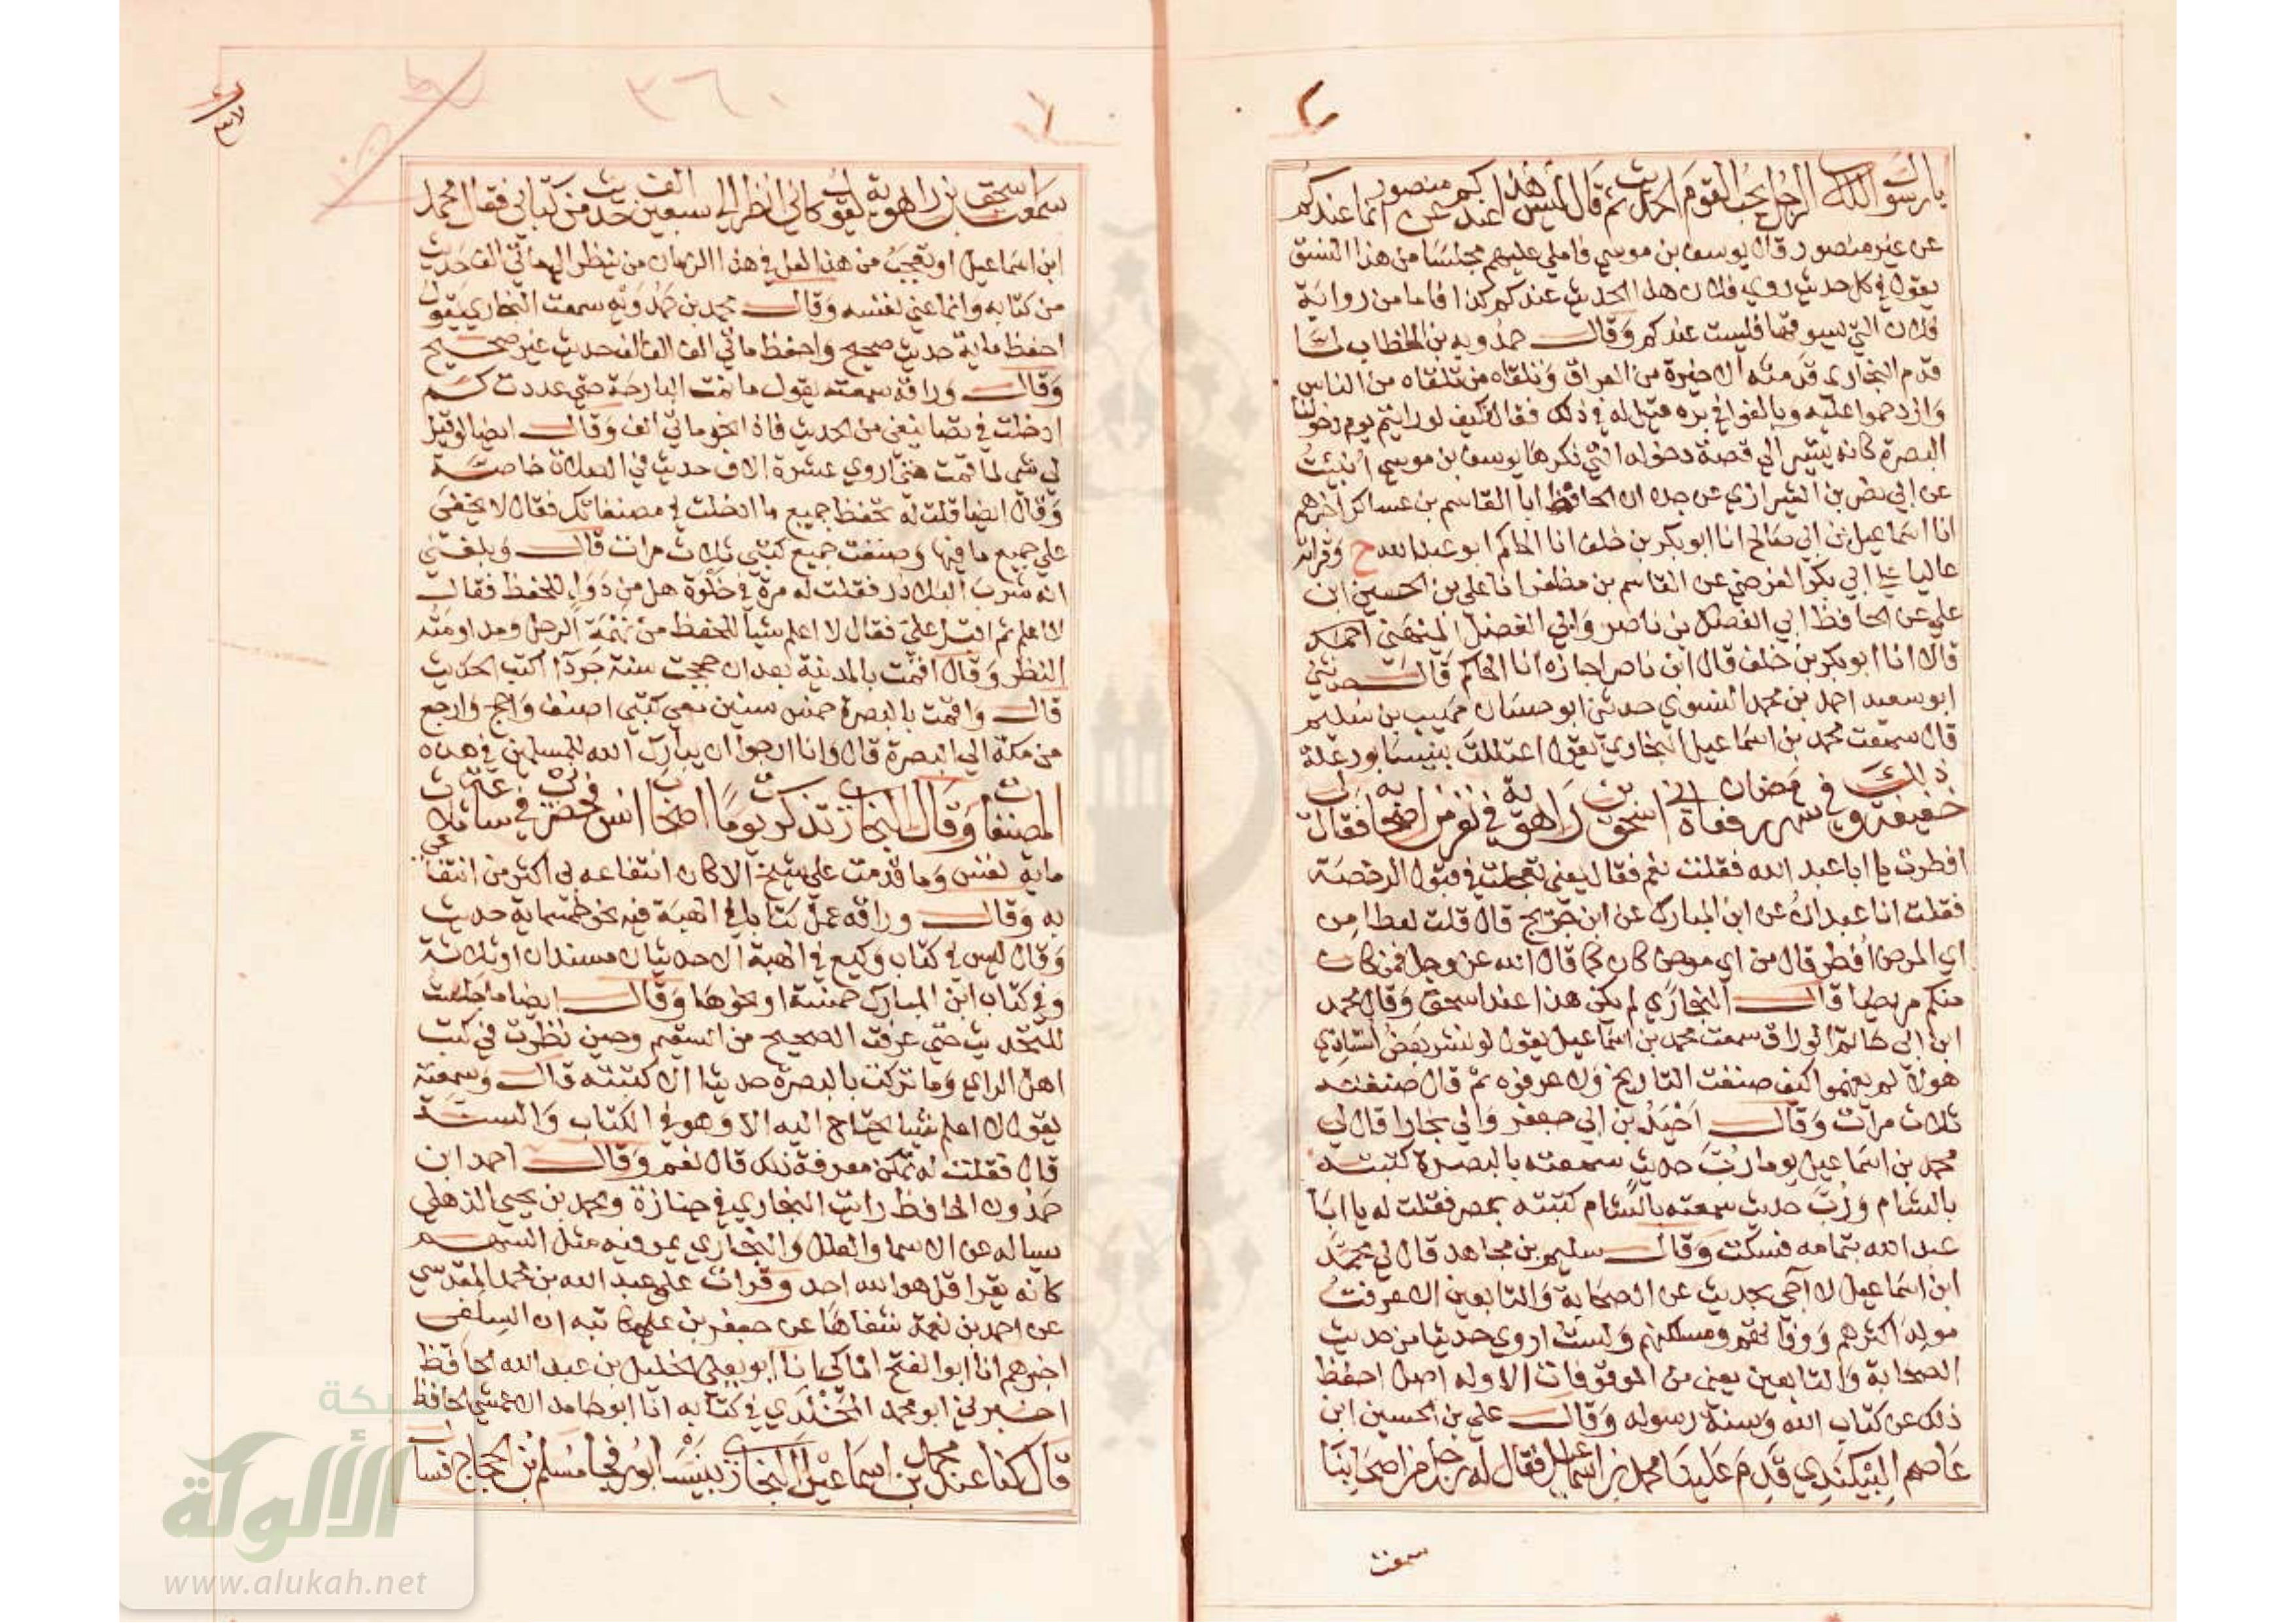 ٢
يا رسول الله الرجل يحب القوم الحديث ثم قال ليس هذا عندكم عن منصور انما عندكم
عن غير منصور وقال يوسف بن موسي فاملي عليهم مجلسا من هذا النسق
يقول في كل حديث روي فلان هذا الحديث عندكم كذا فاما من رواية
فلان التي يسوقها فليست عندكم وقال حمدويه بن الخطاب لما
قدم البخاري قدمته الاخيرة من العراق وتلقاه من تلقاه من الناس
وازدحموا عليه وبالغوا في بره قيل له في ذلك فقال كيف لو رايتم يوم دخولنا
البصرة كانه يشير الي قصة دخوله التي ذكرها يوسف بن موسي انبئت
عن ابي نصر بن الشيرازي عن جده ان الحافظ ابا القاسم بن عساكر اخبرهم
انا اسماعيل بن ابي صالح انا ابو بكر بن خلف انا الحاكم ابو عبد الله ح وقراته
عاليا علي ابي بكر الفرضي عن القاسم بن مظفر انا علي بن الحسين ابن
علي عن الحافظ ابي الفضل بن ناصر وابي الفضل الميهني احمد
قالا انا ابو بكر بن خلف قال ابن ناصر اجازه انا الحاكم قال حدثني
ابو سعيد احمد بن محمد النسوي حدثني ابو حسان مهيب بن سليم
قال سمعت محمد بن اسماعيل البخاري يقول اعتللت بنيسابور علة
خفيفة وذلك في شهر رمضان فعادني اسحق بن راهوية في نفر من اصحابه فقال لي
افطرت يا ابا عبد الله فقلت نعم فقال يعني تعجلت في قبول الرخصة
فقلت انا عبدان عن ابن المبارك عن ابن جريج قال قلت لعطا من
اي المرض افطر قال من اي مرض كان كما قال الله عز وجل فمن كان
منكم مريضا قال البخاري لم يكن هذا عند اسحق وقال محمد
ابن ابي حاتم الوراق سمعت محمد بن اسماعيل يقول لو نشر بعض استاذي
هولا لم يفهموا كيف صنفت التاريخ ولا عرفوه ثم قال صنفته
ثلاث مرات وقال احيد بن ابي جعفر والي بخارا قال لي
محمد بن اسماعيل يوما رب حديث سمعته بالبصرة كتبته
بالشام ورب حديث سمعته بالشام كتبته بمصر فقلت له يا ابا
عبد الله بتمامه فسكت وقال سليم بن مجاهد قال لي محمد
ابن اسماعيل لا اجي بحديث عن الصحابة والتابعين الا عرفت
مولد اكثرهم ووفاتهم ومساكنهم ولست اروي حديثا من حديث
الصحابة والتابعين يعني من الموقوفات الا وله اصل احفظ
ذلك عن كتاب الله وسنة رسوله وقال علي بن الحسين ابن
عاصم البيكندي قدم علينا محمد بن اسماعيل فقال له رجل من اصحابنا
سمعت
٣٦٠
سمعت اسحق بن راهوية يقول كاني انظر الي سبعين الف حديث من كتابي فقال محمد
ابن اسماعيل او تعجب من هذا لعل في هذا الزمان من ينظر الي مائتي الف حديث
من كتابه وانما عني نفسه وقال محمد بن حمدويه سمعت البخاري يقول
احفظ ماية حديث صحيح واحفظ مائتي الف الف حديث غير صحيح
وقال وراقه سمعته يقول ما نمت البارحة حتي عددت كم
ادخلت في تصانيفي من الحديث فاذا نحو مائتي الف وقال ايضا لو قيل
لي شي لما قمت حتي اروي عشرة الاف حديث في الصلاة خاصة
وقال ايضا قلت له تحفظ جميع ما ادخلت في مصنفاتك فقال لا يخفي
علي جميع ما فيها وصنفت جميع كتبي ثلاث مرات قال وبلغني
انه شرب البلاذر فقلت له مرة في خلوة هل من دواء للحفظ فقال
لا اعلم ثم اقبل علي فقال لا اعلم شيا للحفظ من نهمة الرجل ومداومته
النظر وقال اقمت بالمدينة بعد ان حججت سنة جردا اكتب الحديث
قال واقمت بالبصرة خمس سنين معي كتبي اصنف واحج وارجع
من مكة الي البصرة قال وانا ارجو ان يبارك الله للمسلمين في هذه
المصنفات وقال البخاري تذكرت يوما اصحاب انس فحضرني في ساعة ثلاث
ماية نفس وما قدمت علي شيخ الا كان انتفاعه بي اكثر من انتفاعي
به وقال وراقه عمل كتابا في الهبة فيه نحو خمسماية حديث
وقال ليس في كتاب وكيع في الهبة الا حديثان مسندان او ثلاثة
وفي كتاب ابن المبارك خمسة او نحوها وقال ايضا ما جلست
للتحديث حتي عرفت الصحيح من السقيم وحين نظرت في كتب
اهل الراي وما تركت بالبصرة حديثا الا كتبته قال وسمعته
يقول لا اعلم شيا يحتاج اليه الا وهو في الكتاب والسنة
قال فقلت له يمكن معرفة ذلك قال نعم وقال احمد ابن
حمدون الحافظ رايت البخاري في جنازة ومحمد بن يحيي الذهلي
يساله عن الاسما والعلل والبخاري يمر فيه مثل السهم
كانه يقرا قل هو الله احد وقرات علي عبد الله بن محمد المقدسي
عن احمد بن نعمة شفاها عن جعفر بن علي كتابه ان السلفي
اخبرهم انا ابو الفتح الماكي انا ابو يعلي الخليل بن عبد الله الحافظ
اخبرني ابو محمد المخلدي في كتابه انا ابو حامد الاعمشي الحافظ
قال كنا عند محمد بن اسماعيل البخاري بنيسابور فجا مسلم بن الحجاج فساله
شبكة
الألوكة
www.alukah.net